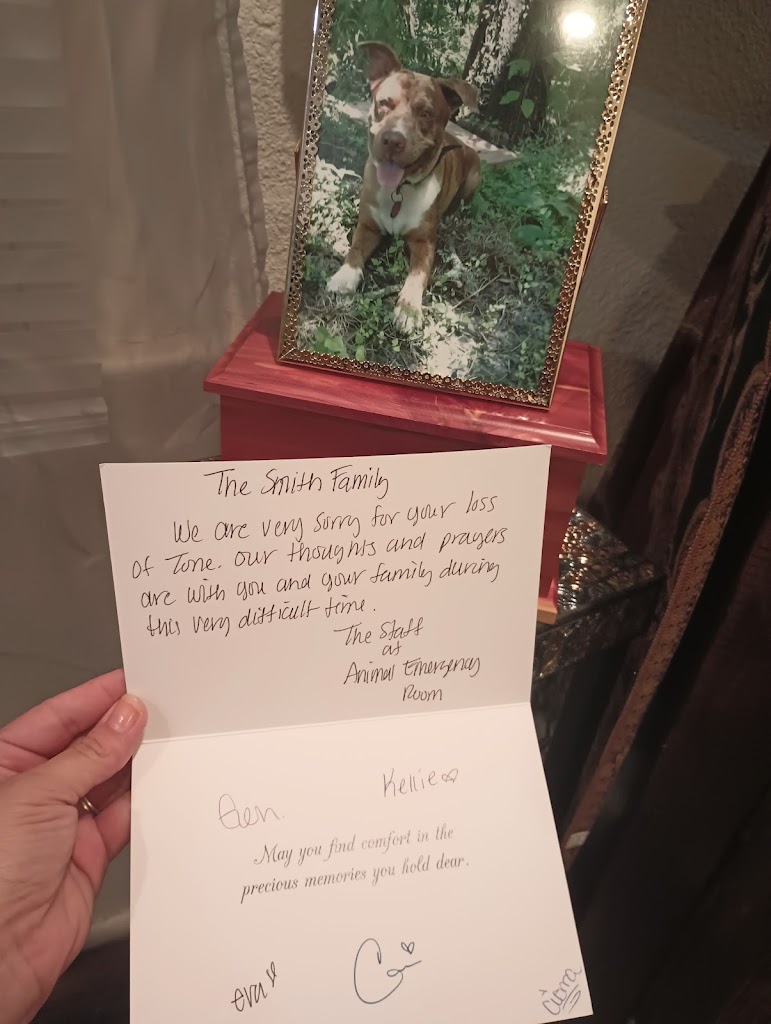 The Smith Family
We are very sorry for your loss
of Tone. Our thoughts and prayers
are with you and your family during
this very difficult time.
The Staff
at
Animal Emergency
Room
Kellie
May you find comfort in the
precious memories you hold dear.
eva